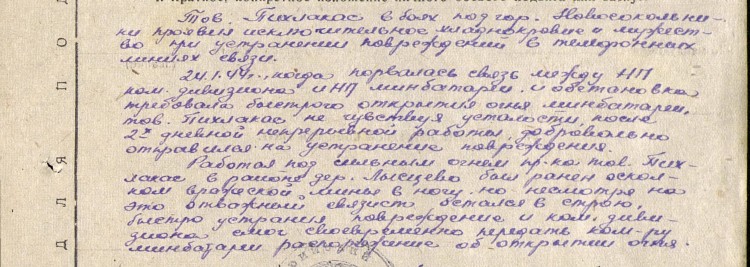 Тов. Пихлакас в боях под гор. Новосокольни-
ки проявил исключительное хладнокровие и мужест-
во при устранении повреждений в телефонных
линиях связи.
24.1.44г. когда порвалась связь между НП
ком. дивизиона и НП минбатареи, и обстановка
требовала быстрого открытия огня минбатареи,
тов. Пихлакас не чувствуя усталости, после
2х дневной непрерывной работы, добровольно
отправился на устранение повреждения.
Работая под сильным огнем пр-ка тов. Пих-
лакас в районе дер. Лысцево был ранен оскол-
ком вражеской мины в ногу, но несмотря на
это отважный связист остался в строю,
быстро устранил повреждение и ком. диви-
зиона смог своевременно передать ком-ру
минбатареи распоряжение об открытии огня.
Д Л Я П О Д